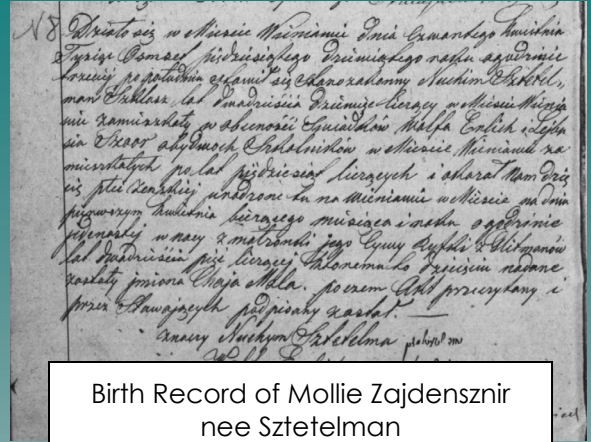 N 8. Działo się w Mieście Wieniawie dnia Czwartego Kwietnia
Tysiąc Ośmset pięćdziesiątego dziewiątego roku o godzinie
trzeciej po południu stawił się Starozakonny Nuchim Sztetel-
man Szklarz lat dwadzieścia dziewięć liczący w Mieście Wienia
wie zamieszkały w obecności Świadków Wolfa Erlich i Lejbu
sia obydwóch Szkolników w Mieście Wieniawie za
mieszkałych po lat pięćdziesiąt liczących i okazał Nam dzie
cię płci żeńskiej urodzone tu na Wieniawie w Mieście na dniu
pierwszym Kwietnia bieżącego miesiąca i roku o godzinie
w nocy z małżonki jego Cywy z
lat dwadzieścia pięć liczącej któremu to dziecięciu nadane
zostały imiona Chaja Mala. poczem Akt przeczytany i
przez Stawających podpisany został. —
znaczy Nuchym Sztetelma
Birth Record of Mollie Zajdensznir
nee Sztetelman